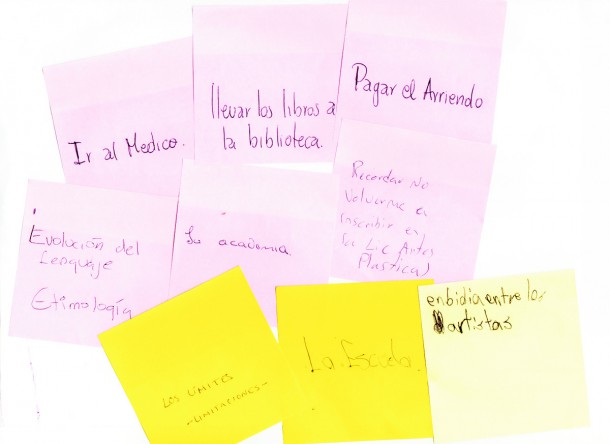 Ir al Medico.
llevar los libros a
la biblioteca.
Pagar el Arriendo
Evolución del
Lenguaje
Etimología
La academia.
Recordar No
Volverme a
inscribir en
la Lic Artes
Plasticas
LOS LÍMITES
-LIMITACIONES-
La Escuela.
enbidia entre los
artistas